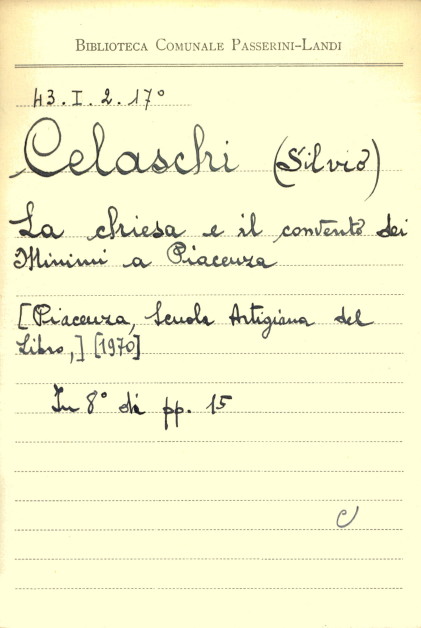 BIBLIOTECA COMUNALE PASSERINI-LANDI
43. I. 2. 17°
Celaschi (Silvio)
La chiesa e il convento dei
Minimi a Piacenza
[Piacenza, Scuola Artigiana del
Libro,] [1970]
In 8° di pp. 15
C